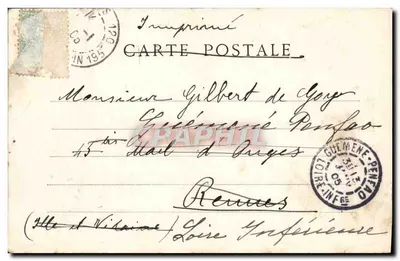 Imprimé
CARTE POSTALE
Monsieur Gilbert de Goy
Guémené Penfao
45 bis Mail d'Onges
Rennes
(Ille et Vilaine)
Loire Inférieure
GUÉMENÉ-PENFAO
LOIRE-INFRE
05